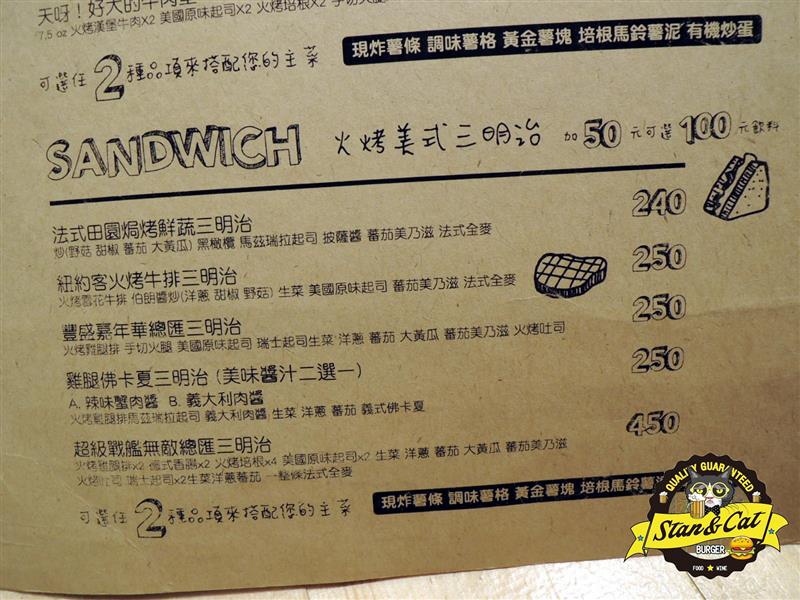 天呀！好大的牛肉堡
7.5 oz 火烤漢堡牛肉X2 美國原味起司X2 火烤培根X2 手切火腿
可選任 2 種品項來搭配您的主菜
現炸薯條 調味薯格 黃金薯塊 培根馬鈴薯泥 有機炒蛋
SANDWICH 火烤美式三明治 加 50 元可選 100 元飲料
法式田園焗烤鮮蔬三明治 240
炒(野菇 甜椒 蕃茄 大黃瓜) 黑橄欖 馬茲瑞拉起司 披薩醬 蕃茄美乃滋 法式全麥
紐約客火烤牛排三明治 250
火烤雪花牛排 伯朗醬炒(洋蔥 甜椒 野菇) 生菜 美國原味起司 蕃茄美乃滋 法式全麥
豐盛嘉年華總匯三明治 250
火烤雞腿排 手切火腿 美國原味起司 瑞士起司生菜 洋蔥 蕃茄 大黃瓜 蕃茄美乃滋 火烤吐司
雞腿佛卡夏三明治 (美味醬汁二選一) 250
A. 辣味蟹肉醬 B. 義大利肉醬
火烤雞腿排馬茲瑞拉起司 義大利肉醬 生菜 洋蔥 蕃茄 義式佛卡夏
超級戰艦無敵總匯三明治 450
火烤雞腿排x2 德式香腸x2 火烤培根x4 美國原味起司x2 生菜 洋蔥 蕃茄 大黃瓜 蕃茄美乃滋
火烤吐司 瑞士起司x2生菜洋蔥蕃茄 一整條法式全麥
可選任 2 種品項來搭配您的主菜
現炸薯條 調味薯格 黃金薯塊 培根馬鈴薯
QUALITY GUARANTEED
Stan & Cat
BURGER
FOOD ★ WINE